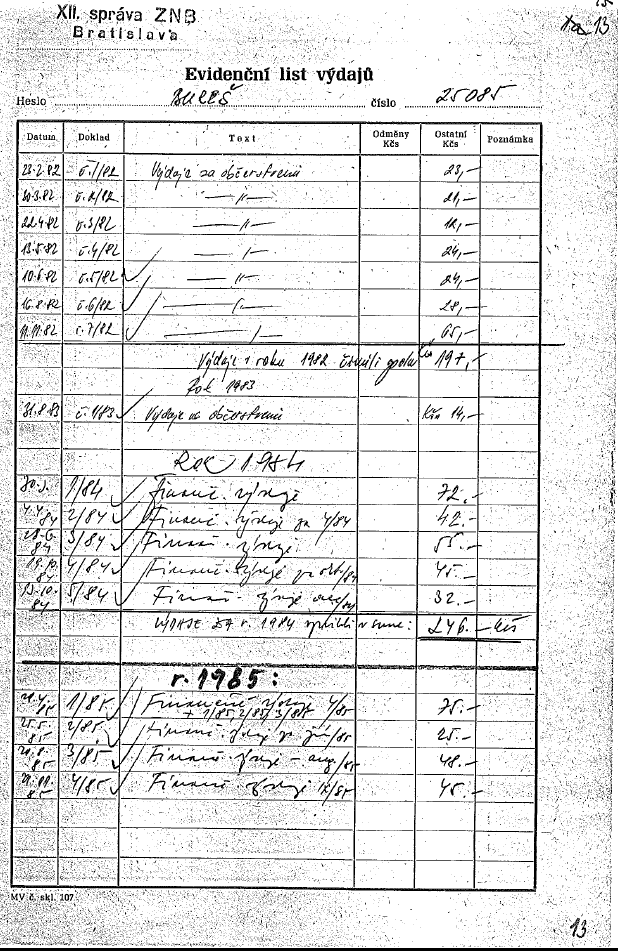 XII. správa ZNB
Bratislava
13
Evidenční list výdajů
Heslo BUREŠ číslo 25085
Datum Doklad Text Odměny Kčs Ostatní Kčs Poznámka
23.2.82 č.1/82 Výdaje za občerstvení 23,-
30.3.82 č.2/82 —"— 21,-
22.4.82 č.3/82 —"— 12,-
13.5.82 č.4/82 —"— 24,-
10.6.82 č.5/82 —"— 24,-
16.8.82 č.6/82 —"— 28,-
11.11.82 č.7/82 —"— 65,-
Výdaje v roku 1982 činili spolu Kčs 197,-
Rok 1983
31.8.83 č.1/83 Výdaje na občerstvenie Kčs 14,-
Rok 1984
1/84 Financ. výdaje 72.-
4.4.84 2/84 Financ. výdaje za 4/84 42.-
28.6.84 3/84 Financ. výdaje 55.-
84 4/84 Financ. výdaje 45.-
84 5/84 Financ. výdaje 32.-
VÝDAJE ZA r. 1984 v sume: 246.- Kčs
r. 1985:
85 1/85 Finančné výdaje 4/85 75.-
+ 1/85, 2/85, 3/85
25.5.85 2/85 Financ. výdaje za 25.-
85 3/85 Financ. výdaje - aug/85 48.-
85 4/85 Financ. výdaje 45.-
MV č. skl. 107
13